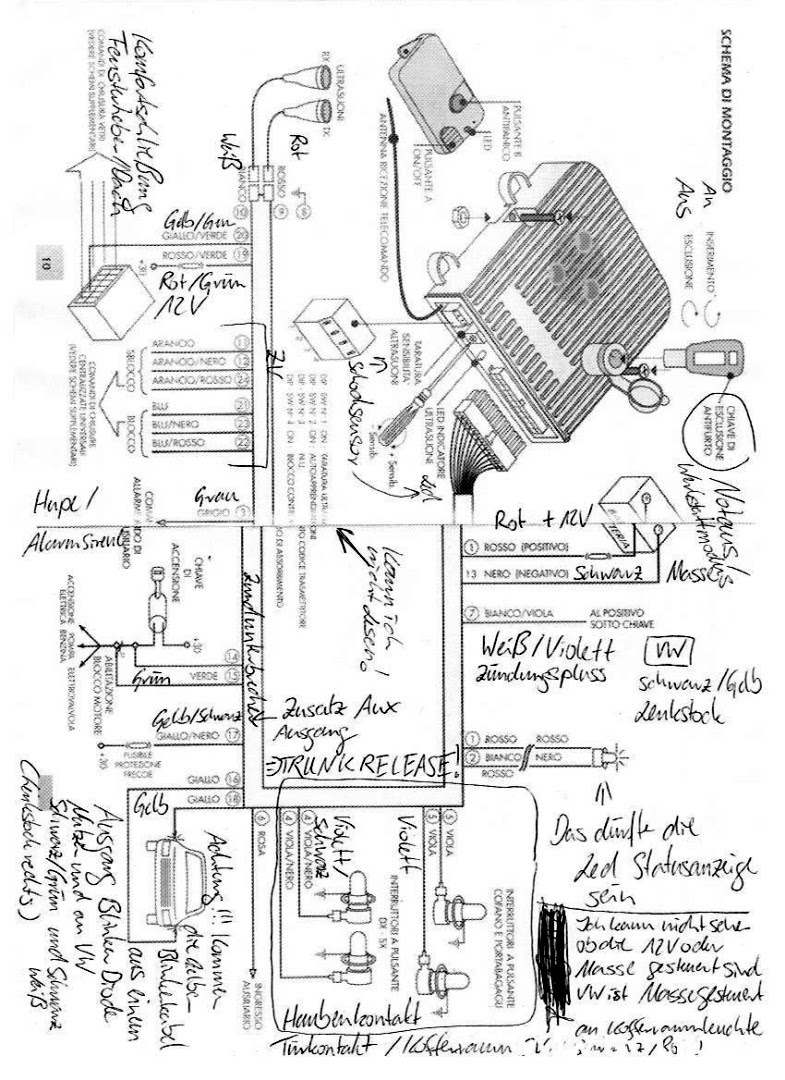 SCHEMA DI MONTAGGIO
An INSERIMENTO
Aus ESCLUSIONE
CHIAVE DI
ESCLUSIONE
ANTIFURTO
Notaus/
PULSANTE B
ANTIPANICO
LED
PULSANTE A
ON/OFF
ANTENNA RICEZIONE TELECOMANDO
ULTRASUONI
RX
TX
Komfortschließung
Fensterheber
COMANDI DI CHIUSURA VETRI
(VEDERE SCHEMI SUPPLEMENTARI)
Weiß
Rot
BIANCO
ROSSO
10
9
8
Gelb/Grün
GIALLO/VERDE 20
ROSSO/VERDE 19
+30
Rot/Grün
12V
10
ARANCIO 11
ARANCIO/NERO 12
ARANCIO/ROSSO 24
BLU 21
BLU/NERO 23
BLU/ROSSO 22
SBLOCCO
BLOCCO
COMANDI DI CHIUSURE
CENTRALIZZATE UNIVERSALI
(VEDERE SCHEMI SUPPLEMENTARI)
ZV
TARATURA
SENSIBILITÀ
ULTRASUONI
Schocksensor
- Sensib.
+ Sensib.
LED INDICATORE
ULTRASUONI
Led
DIP - SW N° 1 ON
DIP - SW N° 2 ON
DIP - SW N° 3
DIP - SW N° 4 ON
N.U.
Hupe/
Alarmsirene
Grau
GRIGIO 3
Kann ich
nicht lesen!
Rot +12V
1 ROSSO (POSITIVO)
13 NERO (NEGATIVO)
Schwarz
Masse
7 BIANCO/VIOLA
AL POSITIVO
SOTTO CHIAVE
Weiß/Violett
Zündungsplus
VW
Schwarz/Gelb
Lenkstock
CHIAVE
DI
ACCENSIONE
+30
ACCENSIONE POMPA ELETTROVALVOLA
ELETTRICA BENZINA
ABILITAZIONE
BLOCCO MOTORE
14
VERDE 15
Grün
Gelb/Schwarz
GIALLO/NERO 17
+30
FUSIBILE
PROTEZIONE
FRECCE
Zusatz Aux
Ausgang
TRUNK RELEASE!
1 ROSSO ROSSO
2 BIANCO NERO
ROSSO
Das dürfte die
Led Statusanzeige
sein
GIALLO 16
GIALLO 18
Gelb
Achtung!!! Kommen
die Gelben
Blinkerkabel
aus einem
Ausgang Blinker Diode
Nutzen und an VW
Schwarz/Grün und Schwarz
weiß
6 ROSA
INGRESSO
AUSILIARIO
4 VIOLA/NERO
4 VIOLA/NERO
Violett/
Schwarz
Violett
5 VIOLA
5 VIOLA
INTERRUTTORI A PULSANTE
DX - SX
INTERRUTTORI A PULSANTE
COFANO E PORTABAGAGLI
Haubenkontakt
Türkontakt / Kofferraum
Ich kann nicht sehen
ob die 12V oder
Masse gesteuert sind
VW ist Masse gesteuert
an Kofferraumleuchte